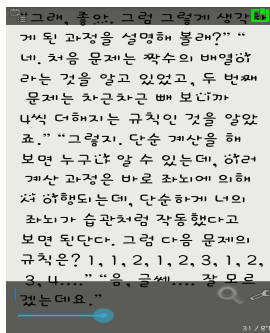 “그래, 좋아. 그럼 그렇게 생각하
게 된 과정을 설명해 볼래?” “
네. 처음 문제는 짝수의 배열이
라는 것을 알고 있었고, 두 번째
문제는 차근차근 빼 보니까
4씩 더해지는 규칙인 것을 알았
죠.” “그렇지. 단순 계산을 해
보면 누구나 알 수 있는데, 이러
계산 과정은 바로 좌뇌에 의해
서 이행되는데, 단순하게 너의
좌뇌가 습관처럼 작동했다고
보면 된단다. 그럼 다음 문제의
규칙은? 1, 1, 2, 1, 2, 3, 1, 2,
3, 4....” “음, 글쎄.... 잘 모르
겠는데요.”